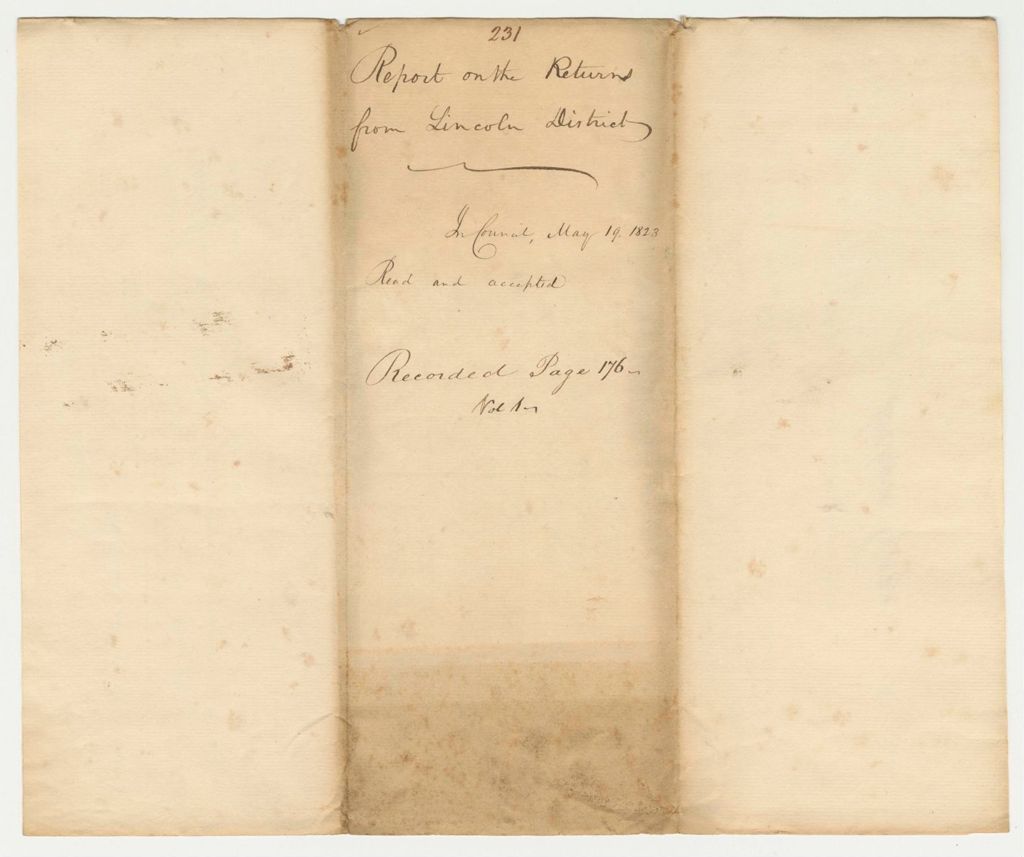 231
Report on the Returns
from Lincoln District
In Council, May 19. 1823
Read and accepted
Recorded Page 176
Vol 1